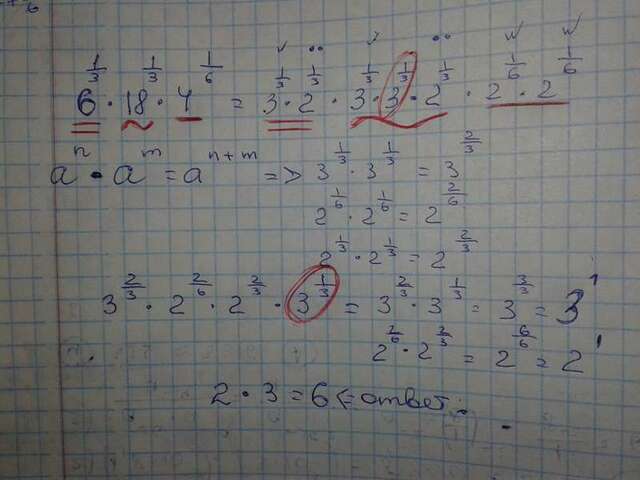 6^{1/3} · 18^{1/3} · 4^{1/6} = 3^{1/3} · 2^{1/3} · 3^{1/3} · 3^{1/3} · 2^{1/3} · 2^{1/6} · 2^{1/6}
a^n · a^m = a^{n+m} => 3^{1/3} · 3^{1/3} = 3^{2/3}
2^{1/6} · 2^{1/6} = 2^{2/6}
2^{1/3} · 2^{1/3} = 2^{2/3}
3^{2/3} · 2^{2/6} · 2^{2/3} · 3^{1/3} = 3^{2/3} · 3^{1/3} = 3^{3/3} = 3^1
2^{2/6} · 2^{2/3} = 2^{6/6} = 2^1
2 · 3 = 6